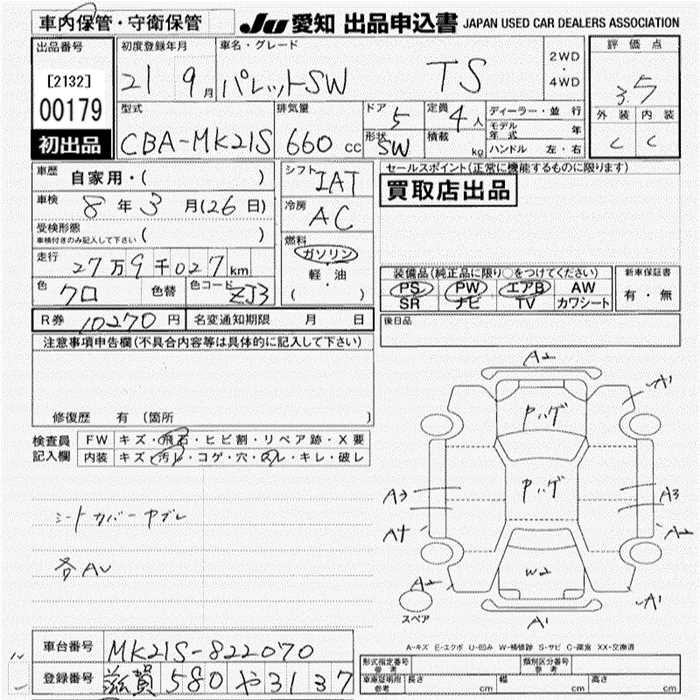 車内保管・守衛保管
JU 愛知 出品申込書 JAPAN USED CAR DEALERS ASSOCIATION
出品番号 [2132] 00179 初出品
初度登録年月 21 9月
車名・グレード パレットSW TS
2WD・4WD
評価点 3.5
外装 C 内装 C
型式 CBA-MK21S
排気量 660 cc
ドア 5 形状 SW
定員 4人 積載 kg
ディーラー・並行
モデル年式 年
ハンドル 左・右
車歴 自家用・( )
車検 8年3月(26日)
受検形態 車検付きのみ記入して下さい ( )
走行 27万9千027km
色 クロ 色替 色コード ZJ3
シフト IAT
冷房 AC
燃料 ガソリン 軽・油 ( )
セールスポイント(正常に機能するものに限ります)
買取店出品
装備品(純正品に限り○をつけてください)
PS PW エアB AW
SR ナビ TV カワシート
新車保証書 有・無
R券 10270円 名変通知期限 月 日
後日品
注意事項申告欄(不具合内容等は具体的に記入して下さい)
修復歴 有 〔箇所 〕
検査員記入欄
FW キズ・飛石・ヒビ割・リペア跡・X要
内装 キズ・汚レ・コゲ・穴・スレ・キレ・破レ
シートカバーヤブレ
各AU
A2
A1
Pハゲ
Pハゲ
A3 A3
A4 A2
W2
A2 A1
スペア
A1
A-キズ E-エクボ U-凹み W-補修跡 S-サビ C-腐食 XX-交換済
車台番号 MK21S-822070
登録番号 滋賀 580 や 3137
形式指定番号 参考 類別区分番号 参考
車庫証明用 参考 長さ cm 幅 cm 高さ cm